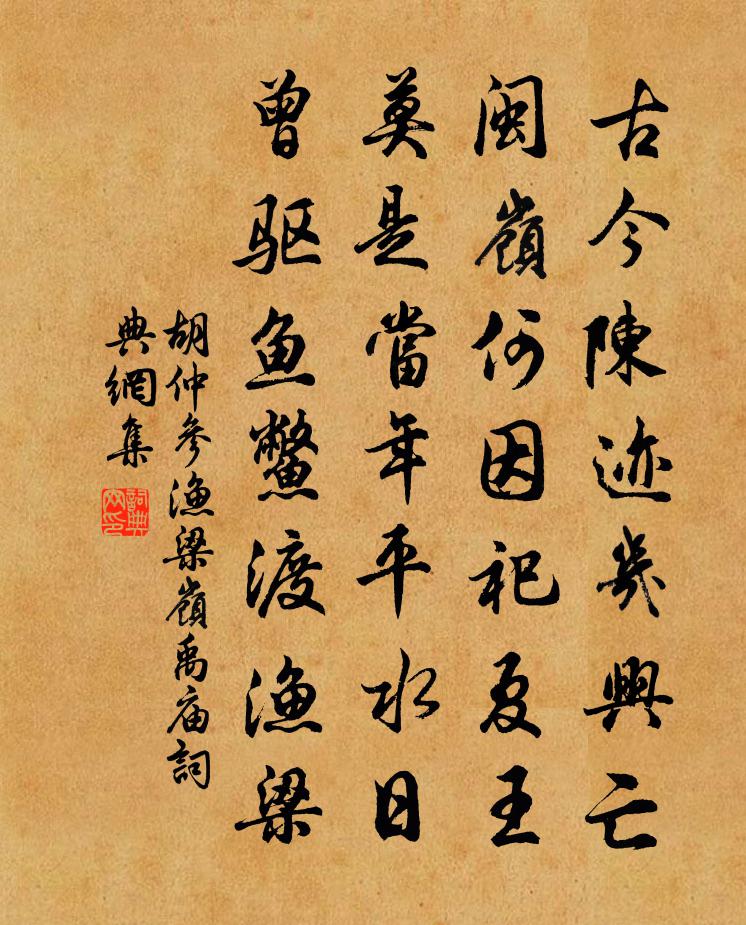 古今陳迹幾興亡
閩嶺何因祀夏王
莫是當年平水日
曾驱鱼鱉渡漁梁
胡仲參漁梁嶺禹庙詞
典網集
詞典網印